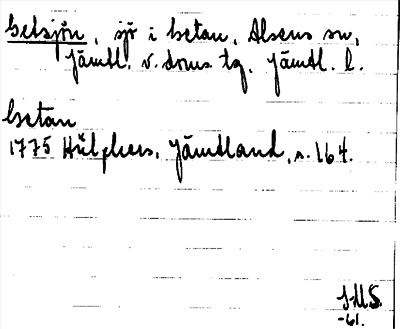 Betsjön, sjö i Betan, Alsens sn,
Jämtl. v. doms tg, Jämtl. l.
Betan
1775 Hülphers, Jämtland, s. 164.
J.M.S.
-61.